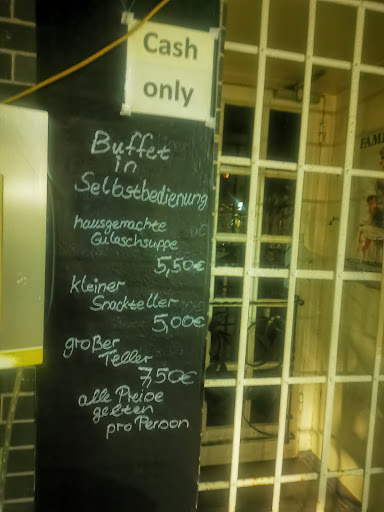 Cash
only
Buffet
in
Selbstbedienung
hausgemachte
Gulaschsuppe
5,50€
kleiner
Snackteller
5,00€
großer
Teller
7,50€
alle Preise
gelten
pro Person